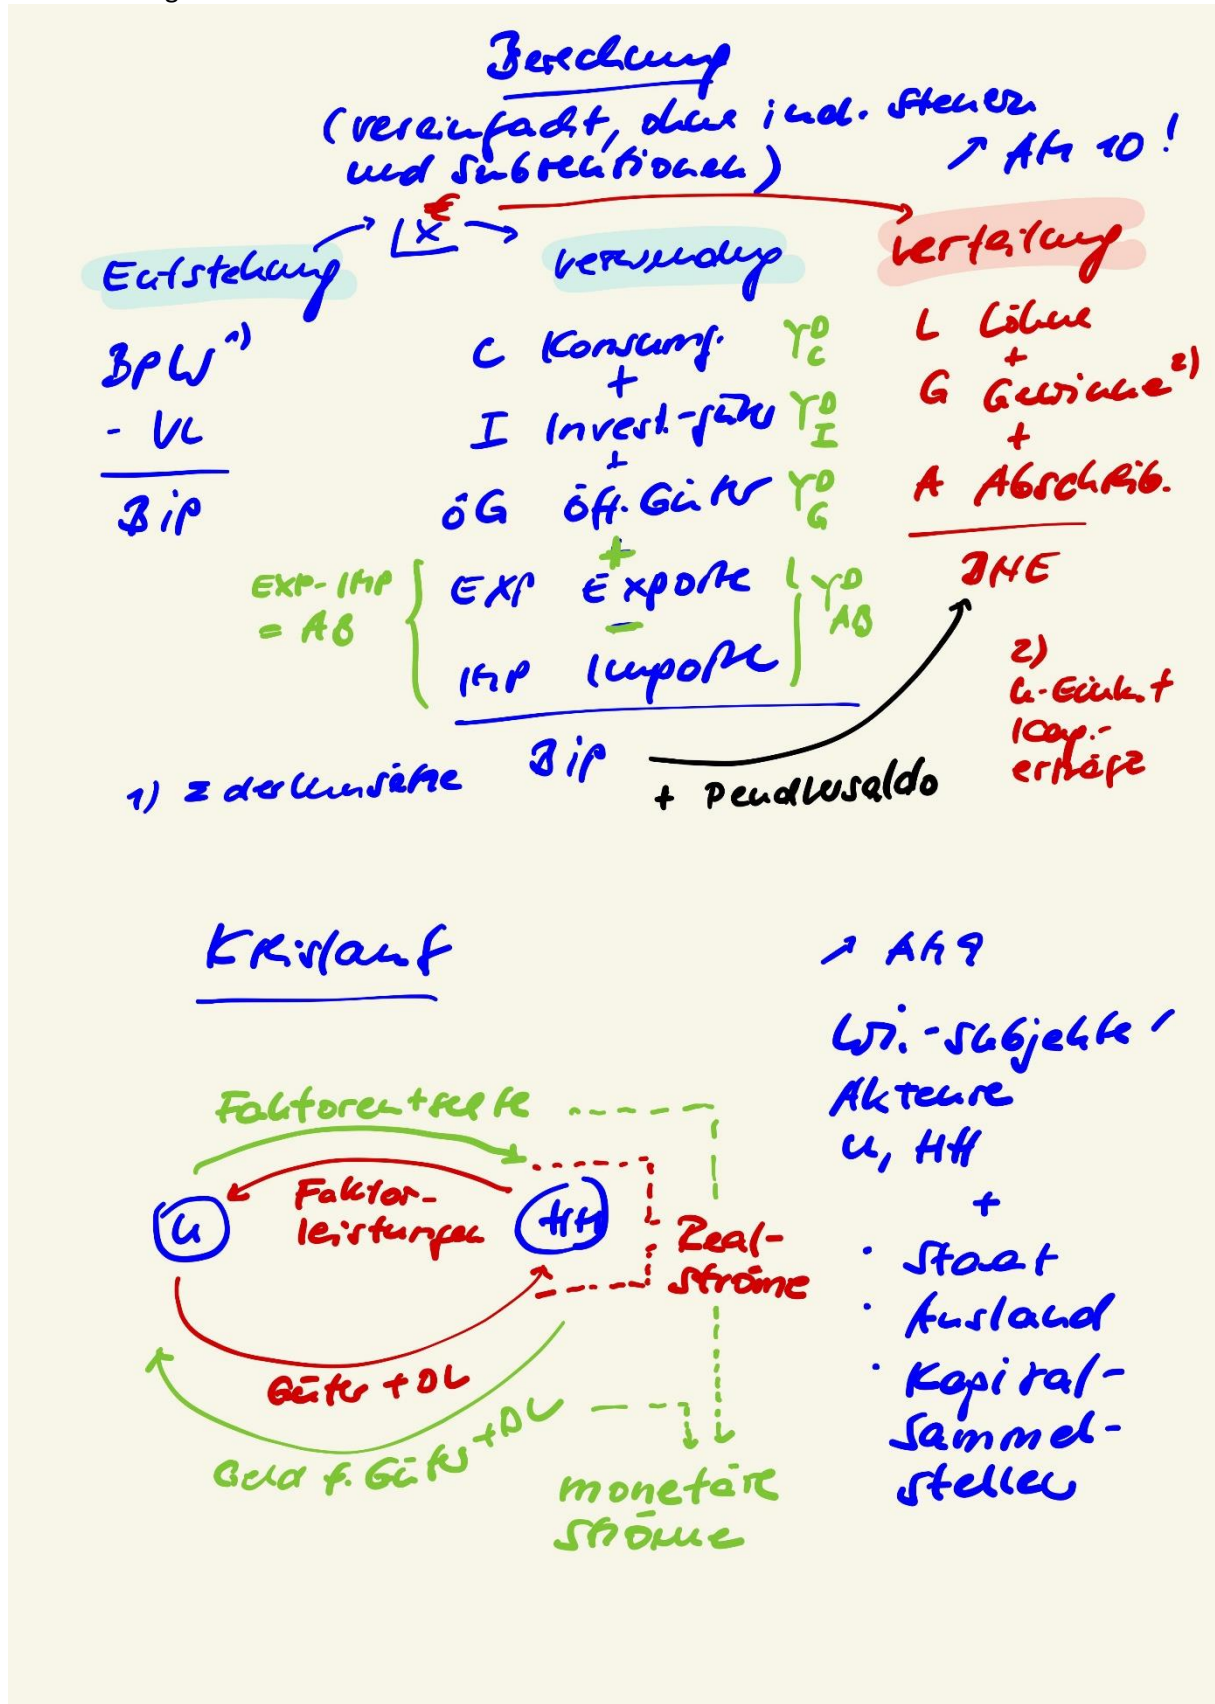 Berechnung
(vereinfacht, ohne ind. Steuern
und Subventionen)
↗ AM 10!
€
x
Entstehung
Verwendung
Verteilung
BPW 1)
- VL
BiP
C Konsumg. Y D C
+
I Invest.-güter Y D I
+
öG öff. Güter Y D G
+
EXP Exporte
-
IMP Importe
Y D AB
EXP-IMP
= AB
BiP
L Löhne
+
G Gewinne 2)
+
A Abschreib.
BNE
2)
U-Eink. +
Kap.-
erträge
1) Σ der Umsätze
+ Pendlersaldo
Kreislauf
↗ AM 9
Wi.-subjekte /
Akteure
U, HH
+
· Staat
· Ausland
· Kapital-
sammel-
stellen
Faktorentgelte
Faktor-
leistungen
U
HH
Real-
ströme
Güter + DL
Geld f. Güter + DL
monetäre
Ströme